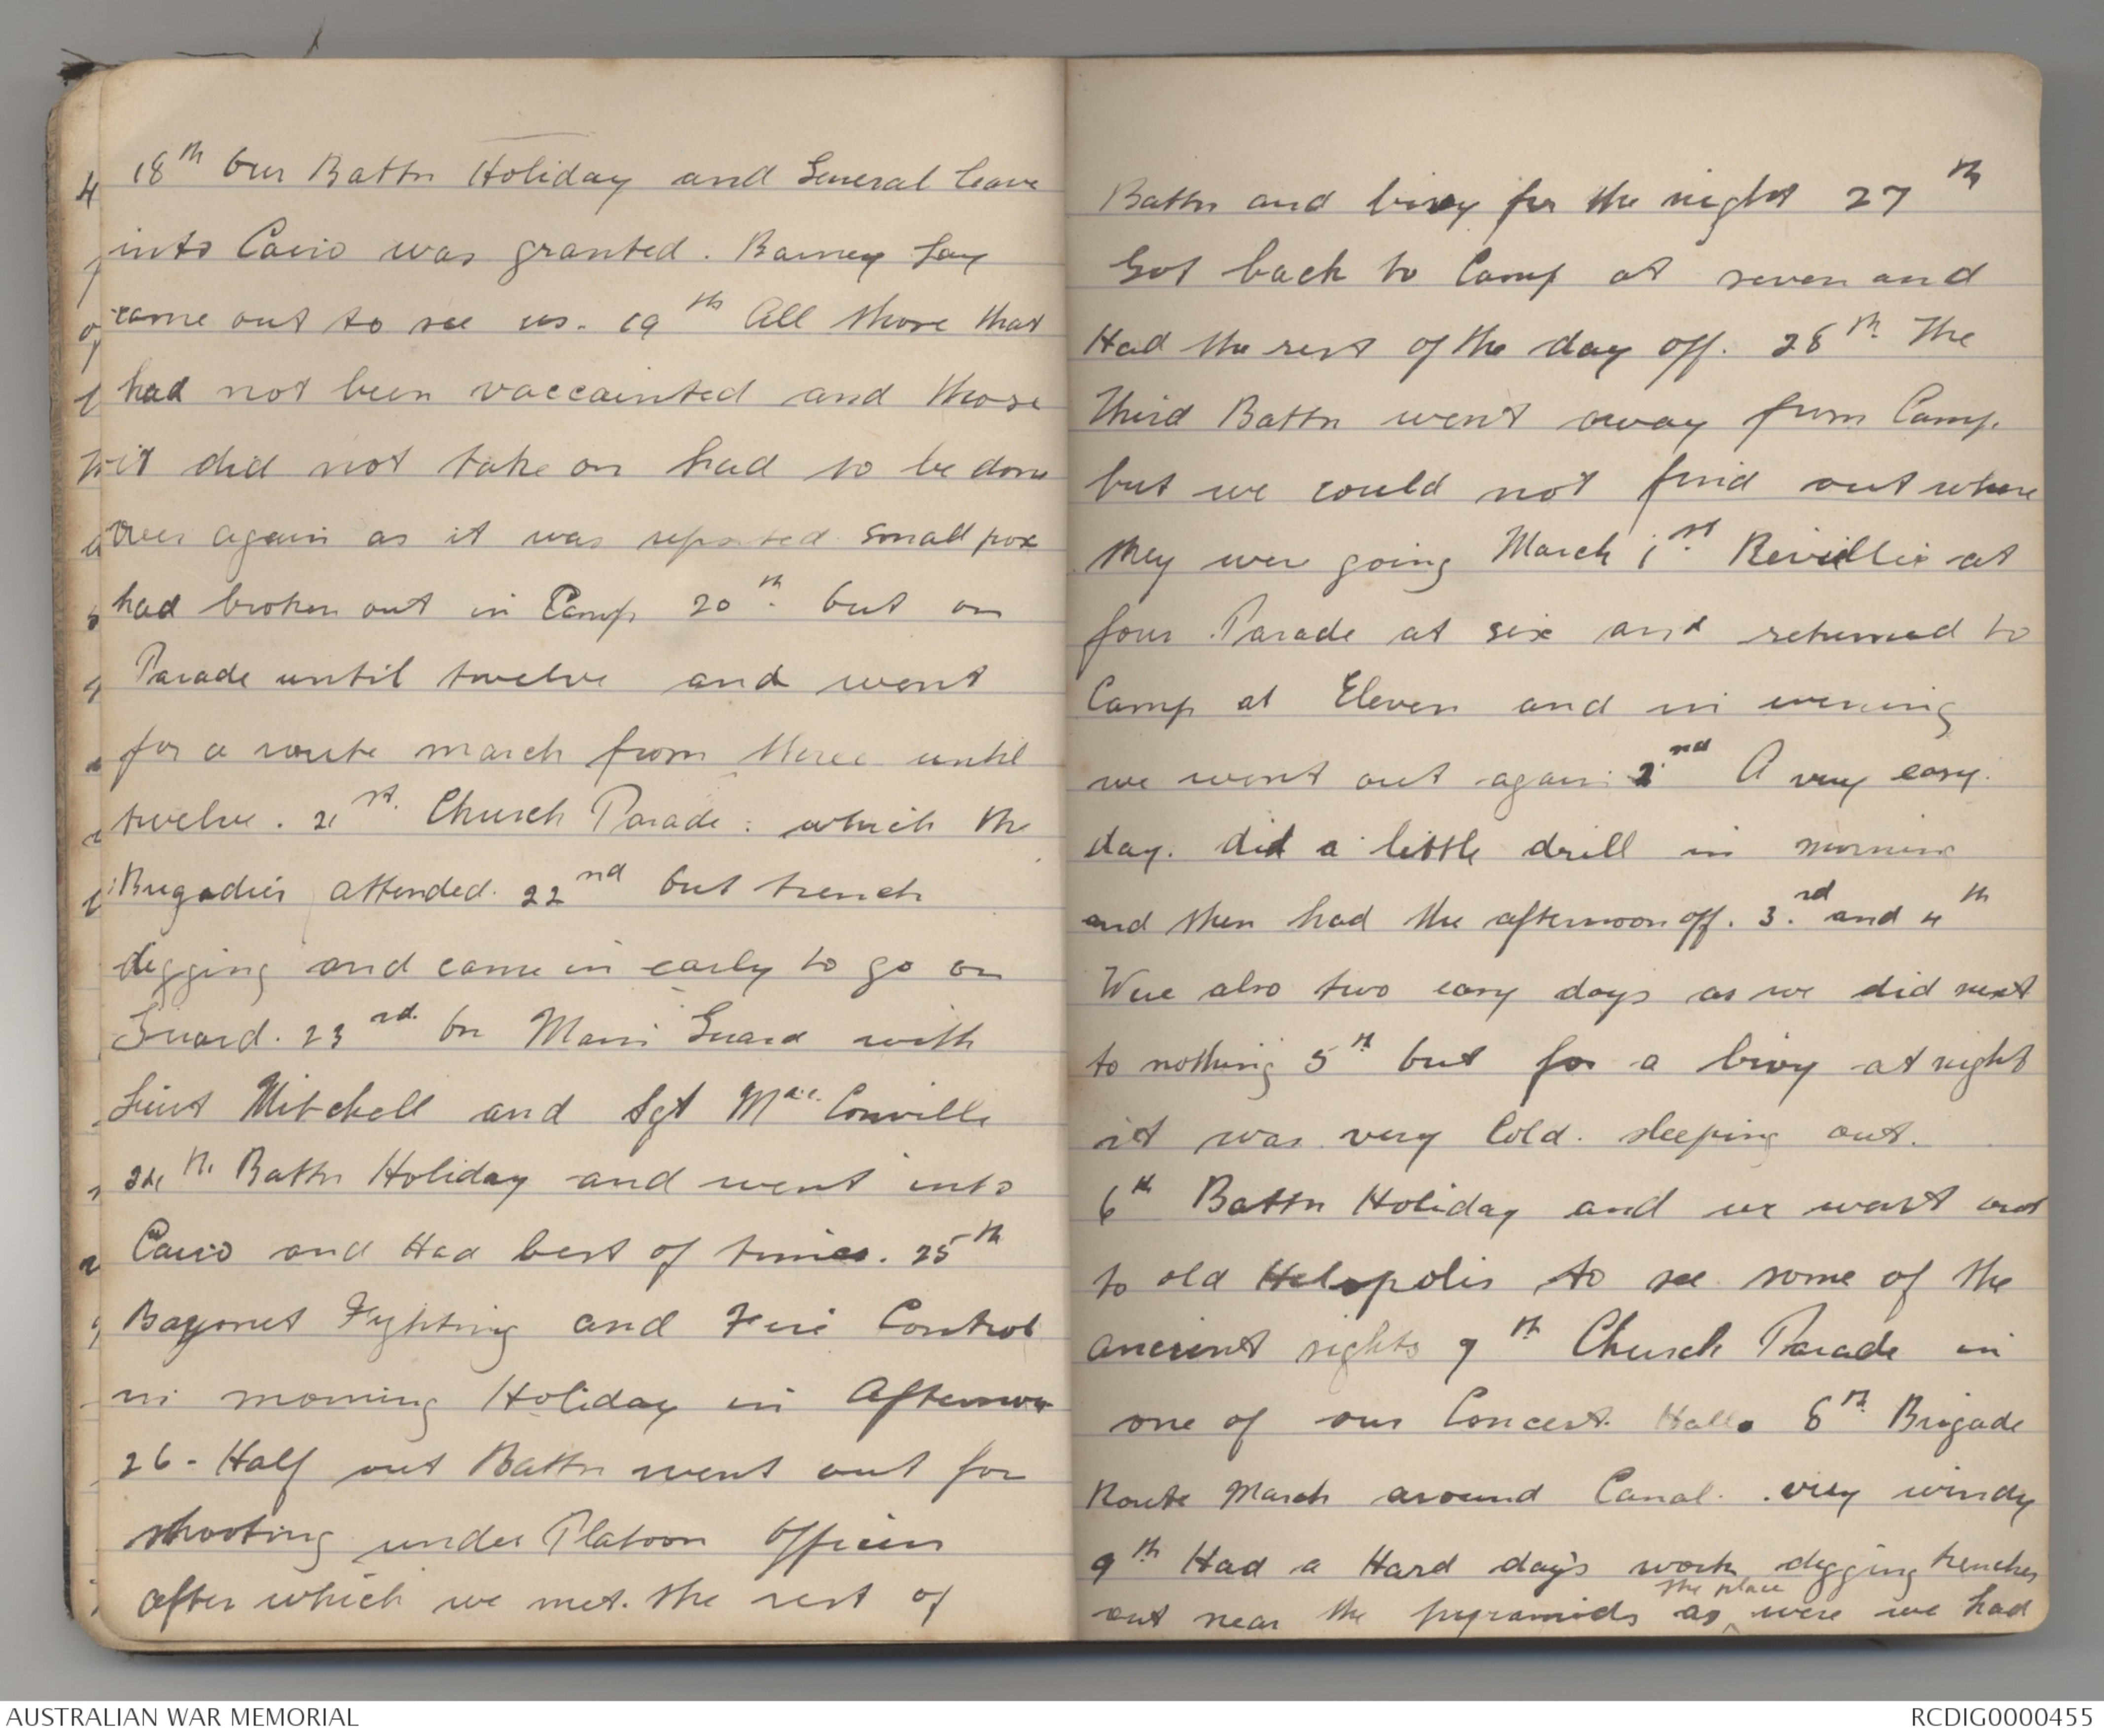 18th Our Battn Holiday and General leave
into Cairo was granted. Barney Fay
came out to see us. 19th All those that
had not been vaccainted and those
it did not take on had to be done
over again as it was reported small pox
had broken out in Camp 20th. Out on
Parade until twelve and went
for a route march from three until
twelve. 21st. Church Parade. which the
Brigadier attended. 22nd Out trench
digging and came in early to go on
Guard. 23rd. On Main Guard with
Liut Mitchell and Sgt Mac. Conville
24th Battn Holiday and went into
Cairo and Had best of times. 25th
Bayonet Fighting and Fire Control
in morning Holiday in Afternoon
26- Half out Battn went out for
shooting under Platoon Officers
after which we met. the rest of
Battn and bivvy for the night 27th
Got back to Camp at seven and
Had the rest of the day off. 28th. The
Third Battn went away from Camp.
but we could not find out where
they were going March 1st Revillie at
four Parade at six and returned to
Camp at Eleven and in evening
we went out again 2nd A very easy.
day. did a little drill in morning
and then had the afternoon off. 3.rd and 4th
Were also two easy days as we did next
to nothing 5th Out for a bivvy at night
it was very Cold. sleeping out.
6th Battn Holiday and we went out
to old Heliopolis to see some of the
ancient sights 7th Church Parade in
one of our Concert. Halls 8th Brigade
Route March around Canal. very windy
9th Had a Hard day's work digging trenches
out near the pyramids as the place were we had
AUSTRALIAN WAR MEMORIAL
RCDIG0000455